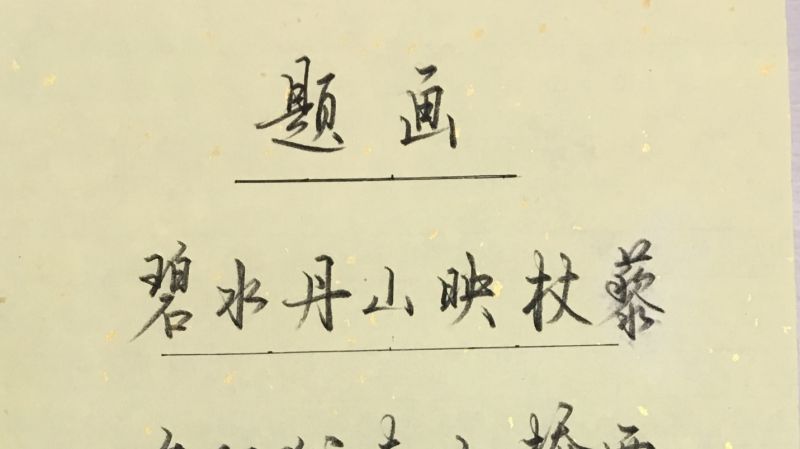 题画
碧水丹山映杖藜